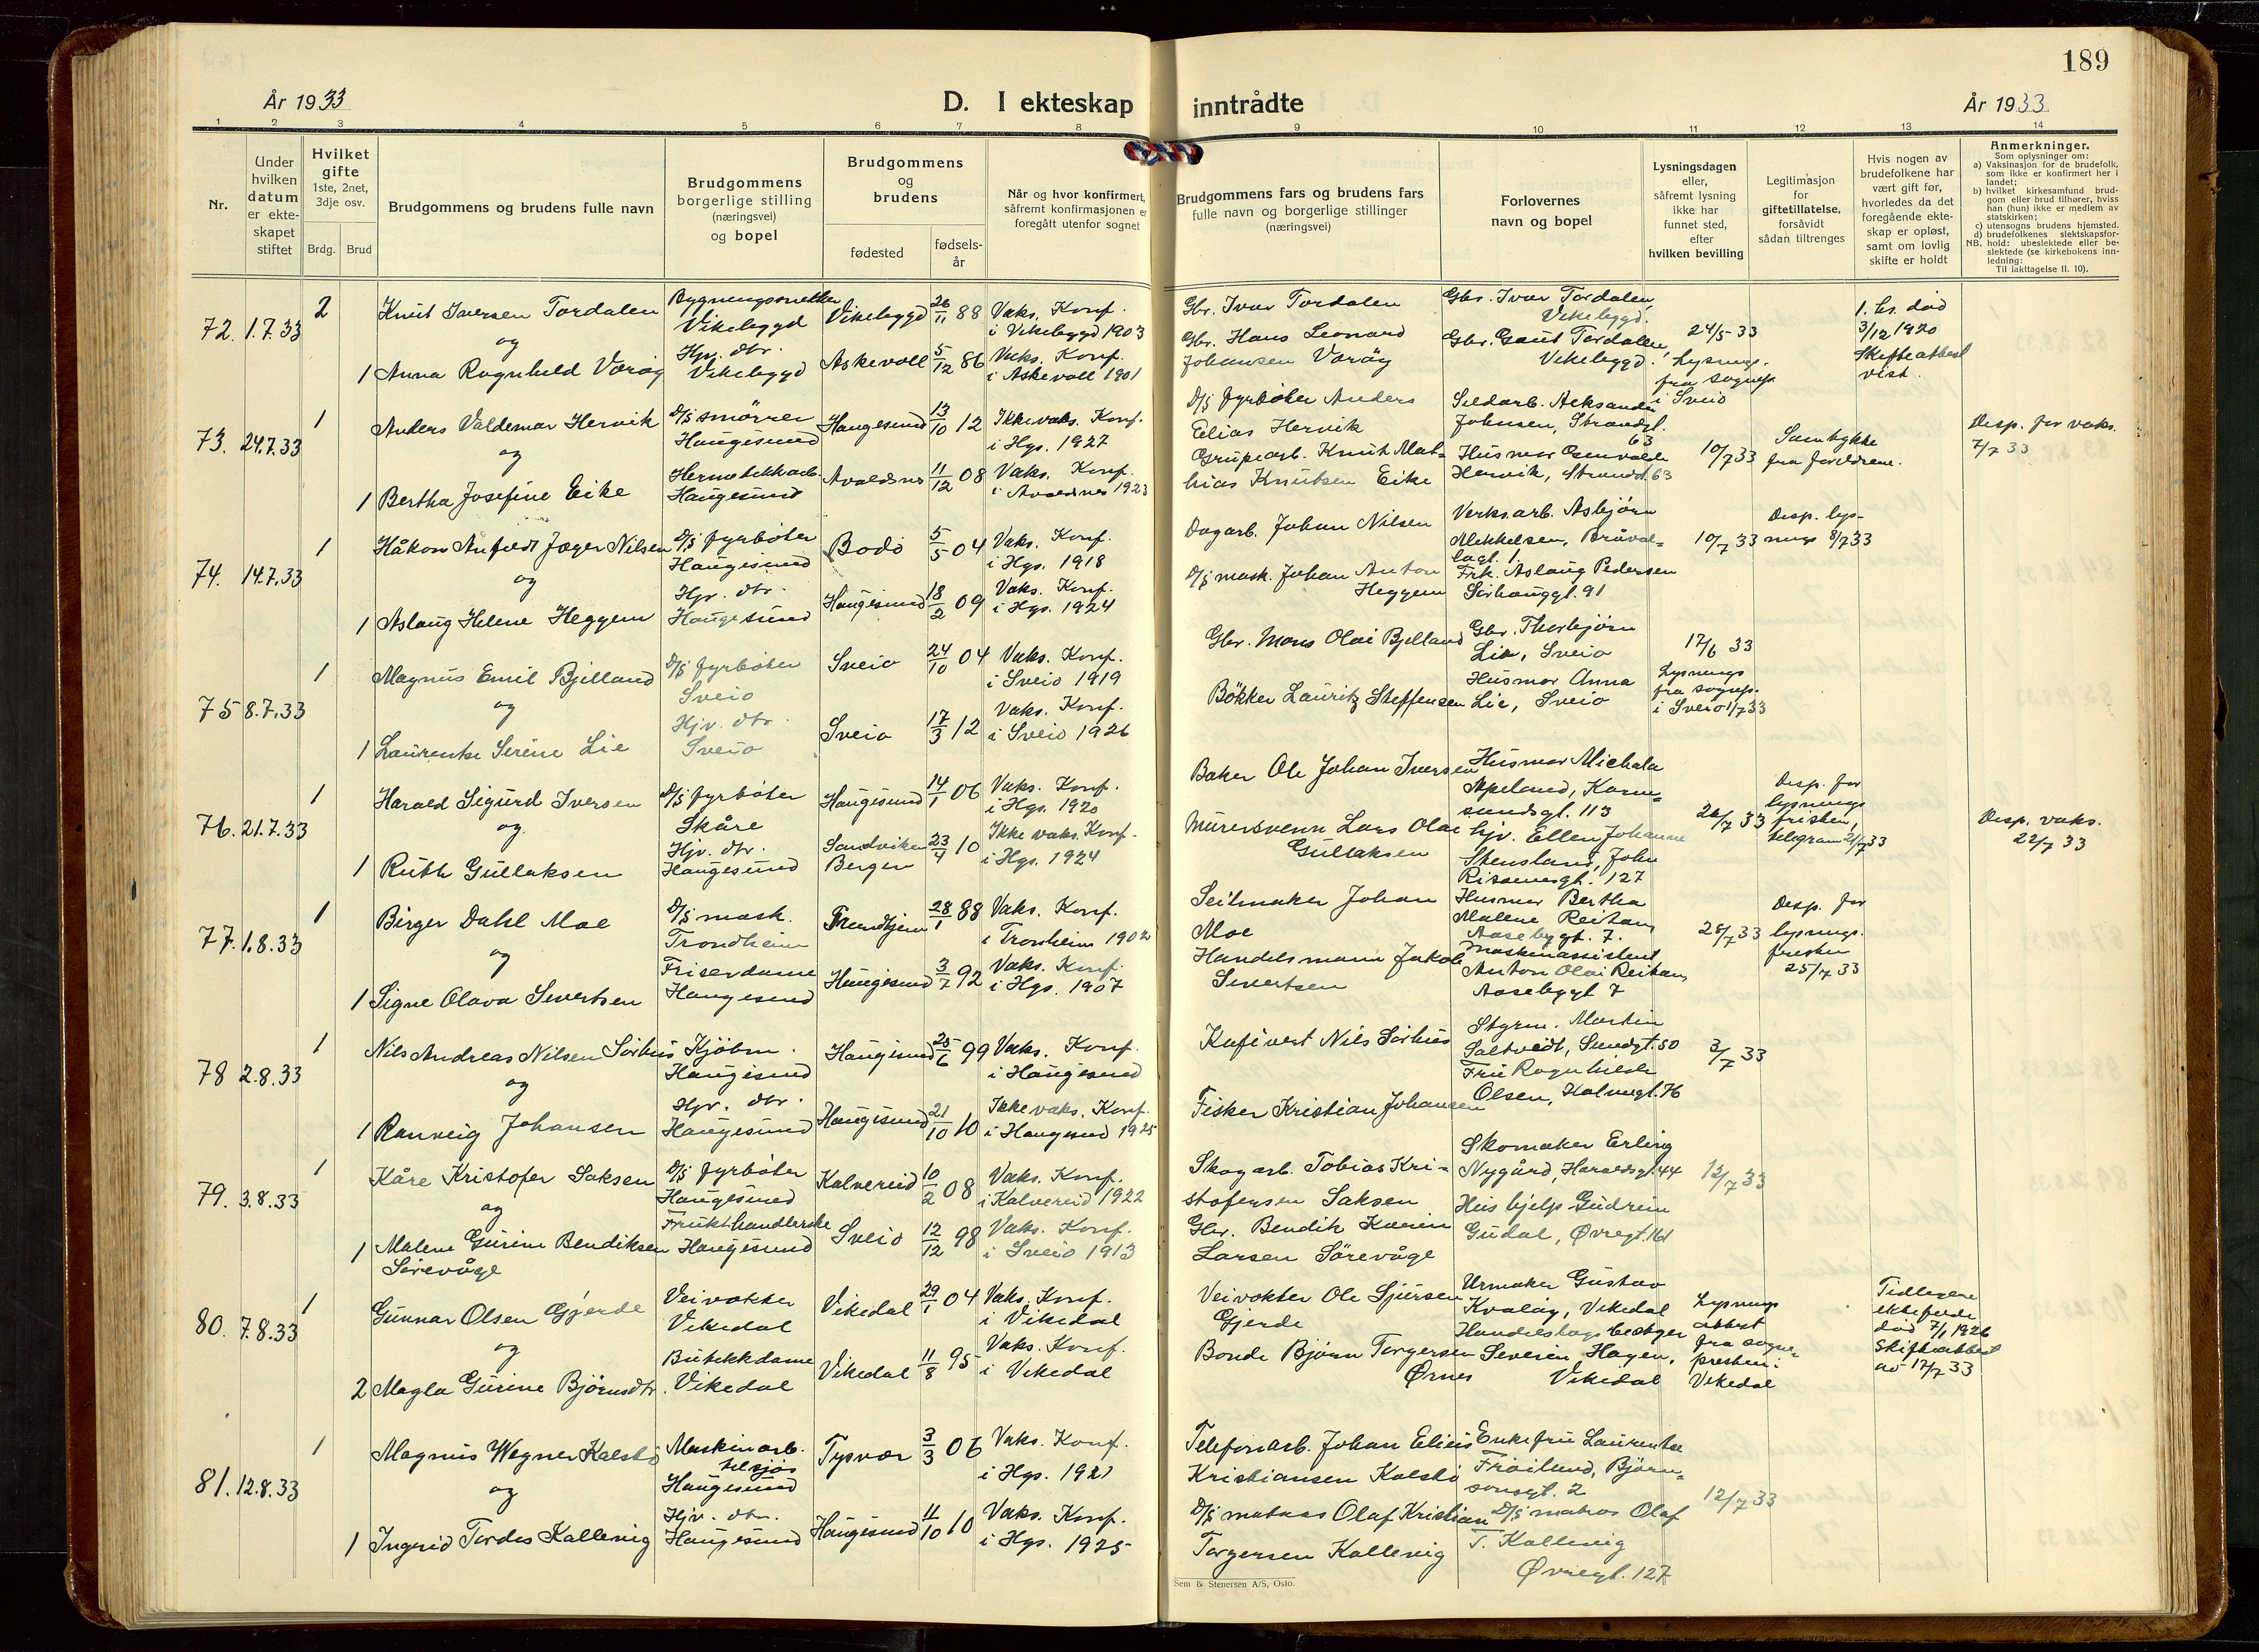 189
År 1933
D. I ekteskap inntrådte
År 1933
1 2 3 4 5 6 7 8 9 10 11 12 13 14
Nr.
Under hvilken datum er ekteskapet stiftet
Hvilket gifte 1ste, 2net, 3dje osv.
Brdg. Brud
Brudgommens og brudens fulle navn
Brudgommens borgerlige stilling (næringsvei) og bopel
Brudgommens og brudens
fødested
fødsels-år
Når og hvor konfirmert, såfremt konfirmasjonen er foregått utenfor sognet
Brudgommens fars og brudens fars fulle navn og borgerlige stillinger (næringsvei)
Forlovernes navn og bopel
Lysningsdagen eller, såfremt lysning ikke har funnet sted, efter hvilken bevilling
Legitimasjon for giftetillatelse, forsåvidt sådan tiltrenges
Hvis nogen av brudefolkene har vært gift før, hvorledes da det foregående ekteskap er opløst, samt om lovlig skifte er holdt
Anmerkninger.
Som oplysninger om:
a) Vaksinasjon for de brudefolk, som ikke er konfirmert her i landet;
b) hvilket kirkesamfund brudgom eller brud tilhører, hviss han (hun) ikke er medlem av statskirken;
c) utensogns brudens hjemsted.
d) brudefolkenes slektskapsforhold: ubeslektede eller beslektede (se kirkebokens innledning:
NB.
Til iakttagelse II. 10).
72. 1.7.33
2 Knut Iversen Tordalen
Bygningssnekker Vikebygd
Vikebygd 26/11 88
Vaks. Konf. i Vikebygd 1903
Gbr. Ivar Tordalen
Gbr. Ivar Tordalen, Vikebygd.
og
1 Anna Ragnhild Værøy
Hjv. dtr. Vikebygd
Askevoll 5/12 86
Vaks. Konf. i Askevoll 1901
Gbr. Hans Leonard Johansen Værøy
Gbr. Gaut Tordalen, Vikebygd.
24/5-33 Lysnings. fra sognep. i Sveio
1. hs. død 3/12 1920 Skifteattest vist.
73. 24.7.33
1 Anders Valdemar Hervik
D/S smörer Haugesund
Haugesund 13/10 12
Ikke vaks. Konf. i Hgs. 1927
D/S fyrböter Anders Elias Hervik
Sildarb. Aleksander Johnsen, Strandgt. 63
og
1 Bertha Josefine Eike
Hermetikkarb. Haugesund
Avaldsnes 11/12 08
Vaks. Konf. i Avaldsnes 1923
Grubearb. Knut Mathias Knutsen Eike
Husmor Hervik, Strandgt. 63
10/7 33
Samtykke fra foreldrene.
Disp. for vaks. 7/7 33
74. 14.7.33
1 Håkon Anfeldt Jæger Nilsen
D/S fyrböter Haugesund
Bodö 5/5 04
Vaks. Konf. i Hgs. 1918
Dagarb. Johan Nilsen
Verksarb. Asbjörn Mikkelsen, Bråvallagt. 1
og
1 Aslaug Helene Heggem
Hjv. dtr. Haugesund
Haugesund 18/2 09
Vaks. Konf. i Hgs. 1924
D/S mask. Johan Anton Heggem
Frk. Aslaug Pedersen Sörhauggt. 91
10/7 33
Disp. lysnings 8/7 33
75 8.7.33
1 Magnus Emil Bjelland
D/S fyrböter Sveio
Sveio 24/10 04
Vaks. Konf. i Sveio 1919
Gbr. Mons Olai Bjelland
Gbr. Thorbjörn Lie, Sveio
og
1 Laurentse Serine Lie
Hjv. dtr. Sveio
Sveio 17/3 12
Vaks. Konf. i Sveio 1926
Bökker Lauritz Steffensen
Husmor Anna Lie, Sveio
17/6 33 Lysnings fra sognep. i Sveio 1/7 33
76. 21.7.33
1 Harald Sigurd Iversen
D/S fyrböter Skåre
Haugesund 14/1 06
Vaks. Konf. i Hgs. 1920
Baker Ole Johan Iversen
Husmor Michala Apeland, Karmsundsgt. 113
og
1 Ruth Gullaksen
Hjv. dtr. Haugesund
Sandviken Bergen 23/4 10
Ikke vaks. Konf. i Hgs. 1924
Murersvenn Lars Olai Gullaksen
hjv. Ellen Johanne Stensland, John Rissensgt. 127
26/7 33
Disp. for lysnings fristen, telegram 21/7 33
Disp. vaks. 22/7 33
77. 1.8.33
1 Birger Dahl Moe
D/S mask. Trondheim
Trondhjem 28/1 88
Vaks. Konf. i Tronheim 1902
Seilmaker Johan Moe
Husmor Bertha Malene Reitan, Aasebygt. 7.
og
1 Signe Olava Sivertsen
Friserdame Haugesund
Haugesund 3/7 92
Vaks. Konf. i Hgs. 1907
Handelsmann Jakob Sivertsen
Maskinassistent Anton Olai Reitan, Aasebygt 7
28/7 33
Disp. for lysnings. fristen 25/7 33
78 2.8.33
1 Nils Andreas Nilsen Sörhus
Kjöbm. Haugesund
Haugesund 25/6 99
Vaks. Konf. i Haugesund
Kafévert Nils Sörhus
Styrm. Martin Saltvedt, Sundgt. 50
og
1 Ranveig Johansen
Hjv. dtr. Haugesund
Haugesund 21/10 10
Ikke vaks. Konf. i Haugesund 1925
Fisker Kristian Johansen
Fru Ragnhilde Olsen, Holmegt. 76
3/7 33
79. 3.8.33
1 Kåre Kristofer Saksen
D/S fyrböter Haugesund
Kalvereid 10/2 08
Vaks. Konf. i Kalvereid 1922
Skogarb. Tobias Kristofersen Saksen
Skomaker Erling Nygård, Haraldsgt. 44
og
1 Malene Gurine Bendiksen Sørevåge
Frukthandlerske Haugesund
Sveio 12/12 98
Vaks. Konf. i Sveio 1913
Gbr. Bendik Larsen Sörevåge
Hushjelp Gudrun Gudal, Øvregt. 161
12/7 33
80. 7.8.33
1 Gunnar Olsen Gjerde
Veivokter Vikedal
Vikedal 29/1 04
Vaks. Konf. i Vikedal
Veivokter Ole Sjursen Gjerde
Urmaker Gustav Kvaløy, Vikedal
og
2 Magla Gurine Björnsdtr.
Butikkdame Vikedal
Vikedal 11/8 95
Vaks. Konf. i Vikedal
Bonde Björn Torgersen Ørnes
Handelslagsbestyrer Severin Hagen, Vikedal
Lysnings attest fra sognepresten i Vikedal
Tidligere ektefelle død 7/1 1926 Skifteattest av 17/7 33
81. 12.8.33
1 Magnus Wegner Kalstö
Maskinarb. tilsjös Haugesund
Tysvær 3/3 06
Vaks. Konf. i Hgs. 1921
Telefonarb. Johan Elieus Kristiansen Kalstö
Enkefru Laurentse Fröiland, Björnsonsgt. 2
og
1 Ingrid Tordis Kallevig
Hjv. dtr. Haugesund
Haugesund 11/10 10
Vaks. Konf. i Hgs. 1925
D/S matros Olaf Kristian Torgersen Kallevig
D/S matros Olaf T. Kallevig Øvregt. 127
12/7 33
Sem & Stenersen A/S, Oslo.